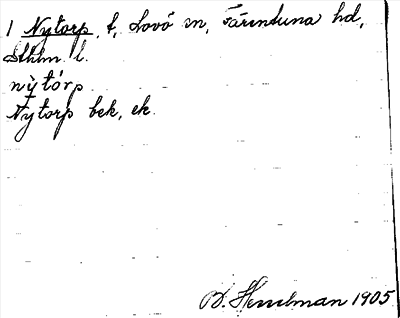 1 Nytorp, t, Lovö sn, Färentuna hd,
Sthlm l.
nỳtórp
Nytorp bek, ek.
B. Hesselman 1905